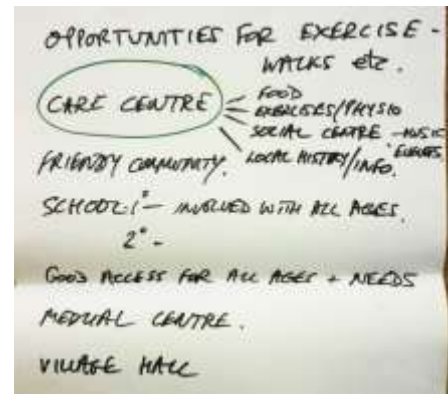 OPPORTUNITIES FOR EXERCISE -
WALKS etc.
CARE CENTRE
FOOD
EXERCISERS/PHYSIO
SOCIAL CENTRE - MUSIC
EVENTS
LOCAL HISTORY/INFO.
FRIENDLY COMMUNITY.
SCHOOL: 1° - INVOLVED WITH ALL AGES.
2° -
GOOD ACCESS FOR ALL AGES + NEEDS
MEDICAL CENTRE.
VILLAGE HALL